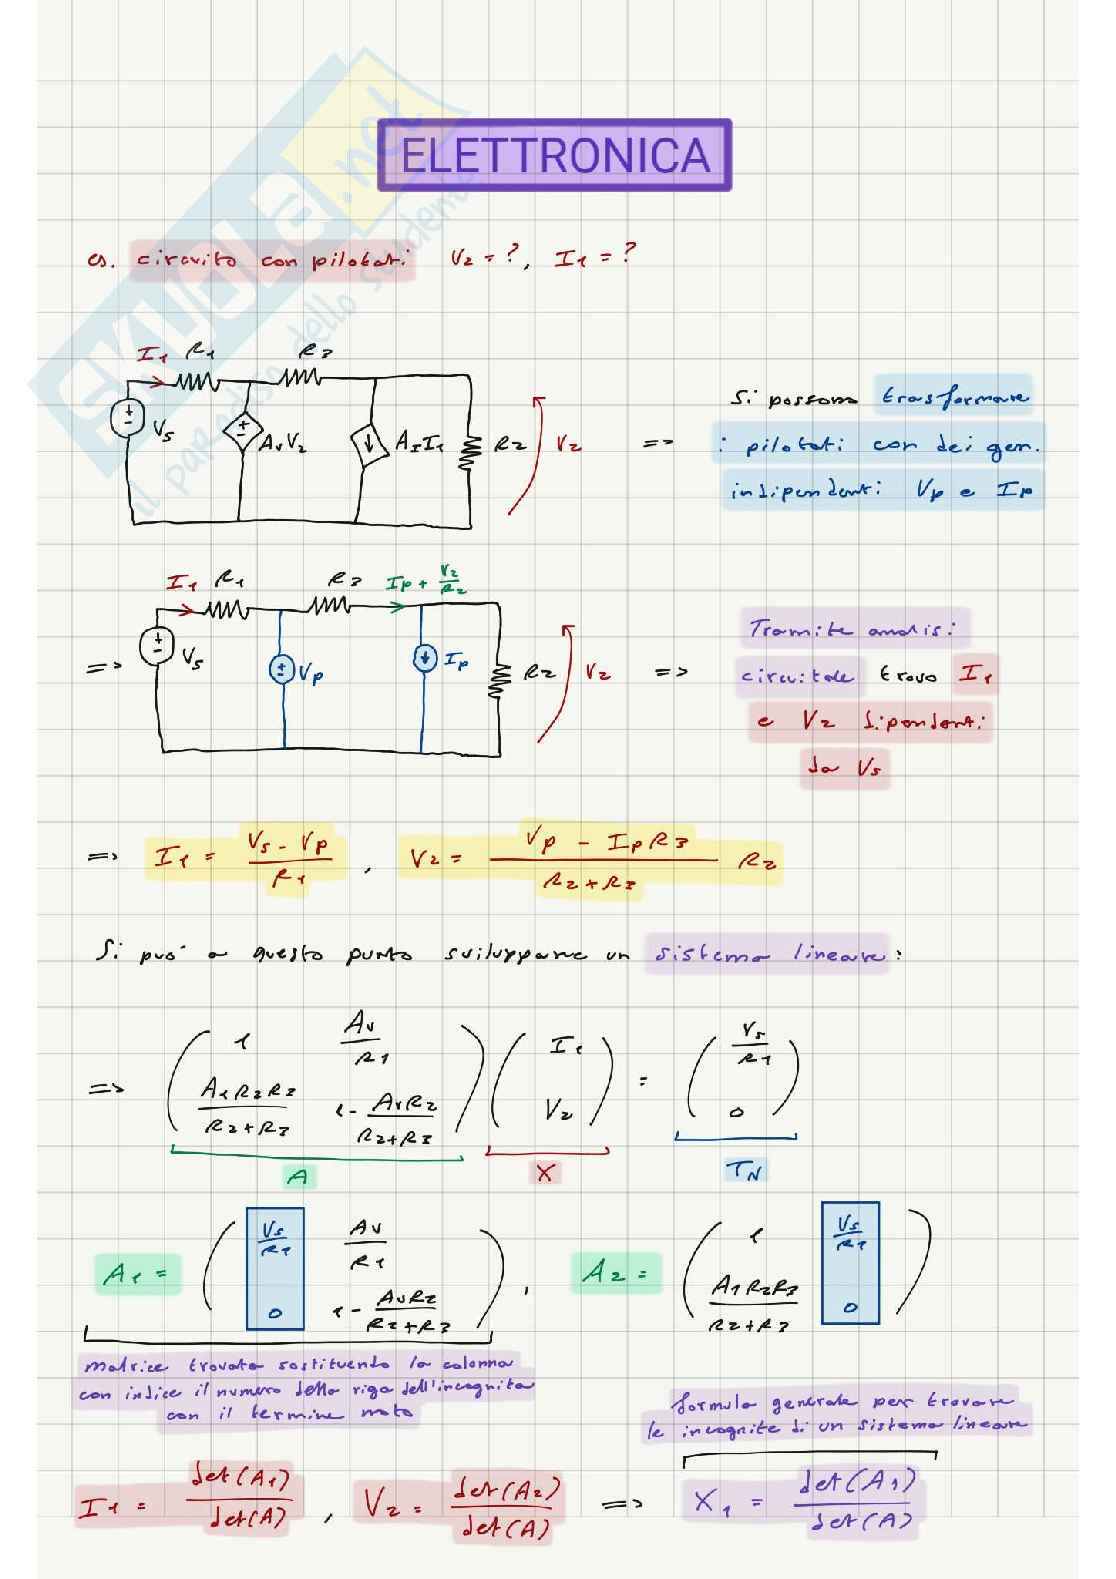 ELETTRONICA
SKUOLA.net
il paradiso dello studente
es. circuito con pilotati V2 = ?, I1 = ?
I1 R1 R3
VS AvV2 AII1 R2 V2
=> Si possono trasformare
i pilotati con dei gen.
indipendenti Vp e Ip
I1 R1 R3 Ip + V2/R2
=> VS Vp Ip R2 V2 =>
Tramite analisi
circuitale trovo I1
e V2 dipendenti
da VS
=> I1 = (VS - Vp)/R1 , V2 = (Vp - IpR3)/(R2+R3) R2
Si può a questo punto sviluppare un sistema lineare:
=> ( 1 Av/R1 ) ( I1 ) = ( VS/R1 )
( A1R2R3/(R2+R3) 1 - AvR2/(R2+R3) ) ( V2 ) ( 0 )
A X TN
A1 = ( VS/R1 Av/R1 ) , A2 = ( 1 VS/R1 )
( 0 1 - AvR2/(R2+R3) ) ( A1R2R3/(R2+R3) 0 )
matrice trovata sostituendo la colonna
con indice il numero della riga dell'incognita
con il termine noto
formula generale per trovare
le incognite di un sistema lineare
I1 = det(A1)/det(A) , V2 = det(A2)/det(A) => X1 = det(A1)/det(A)